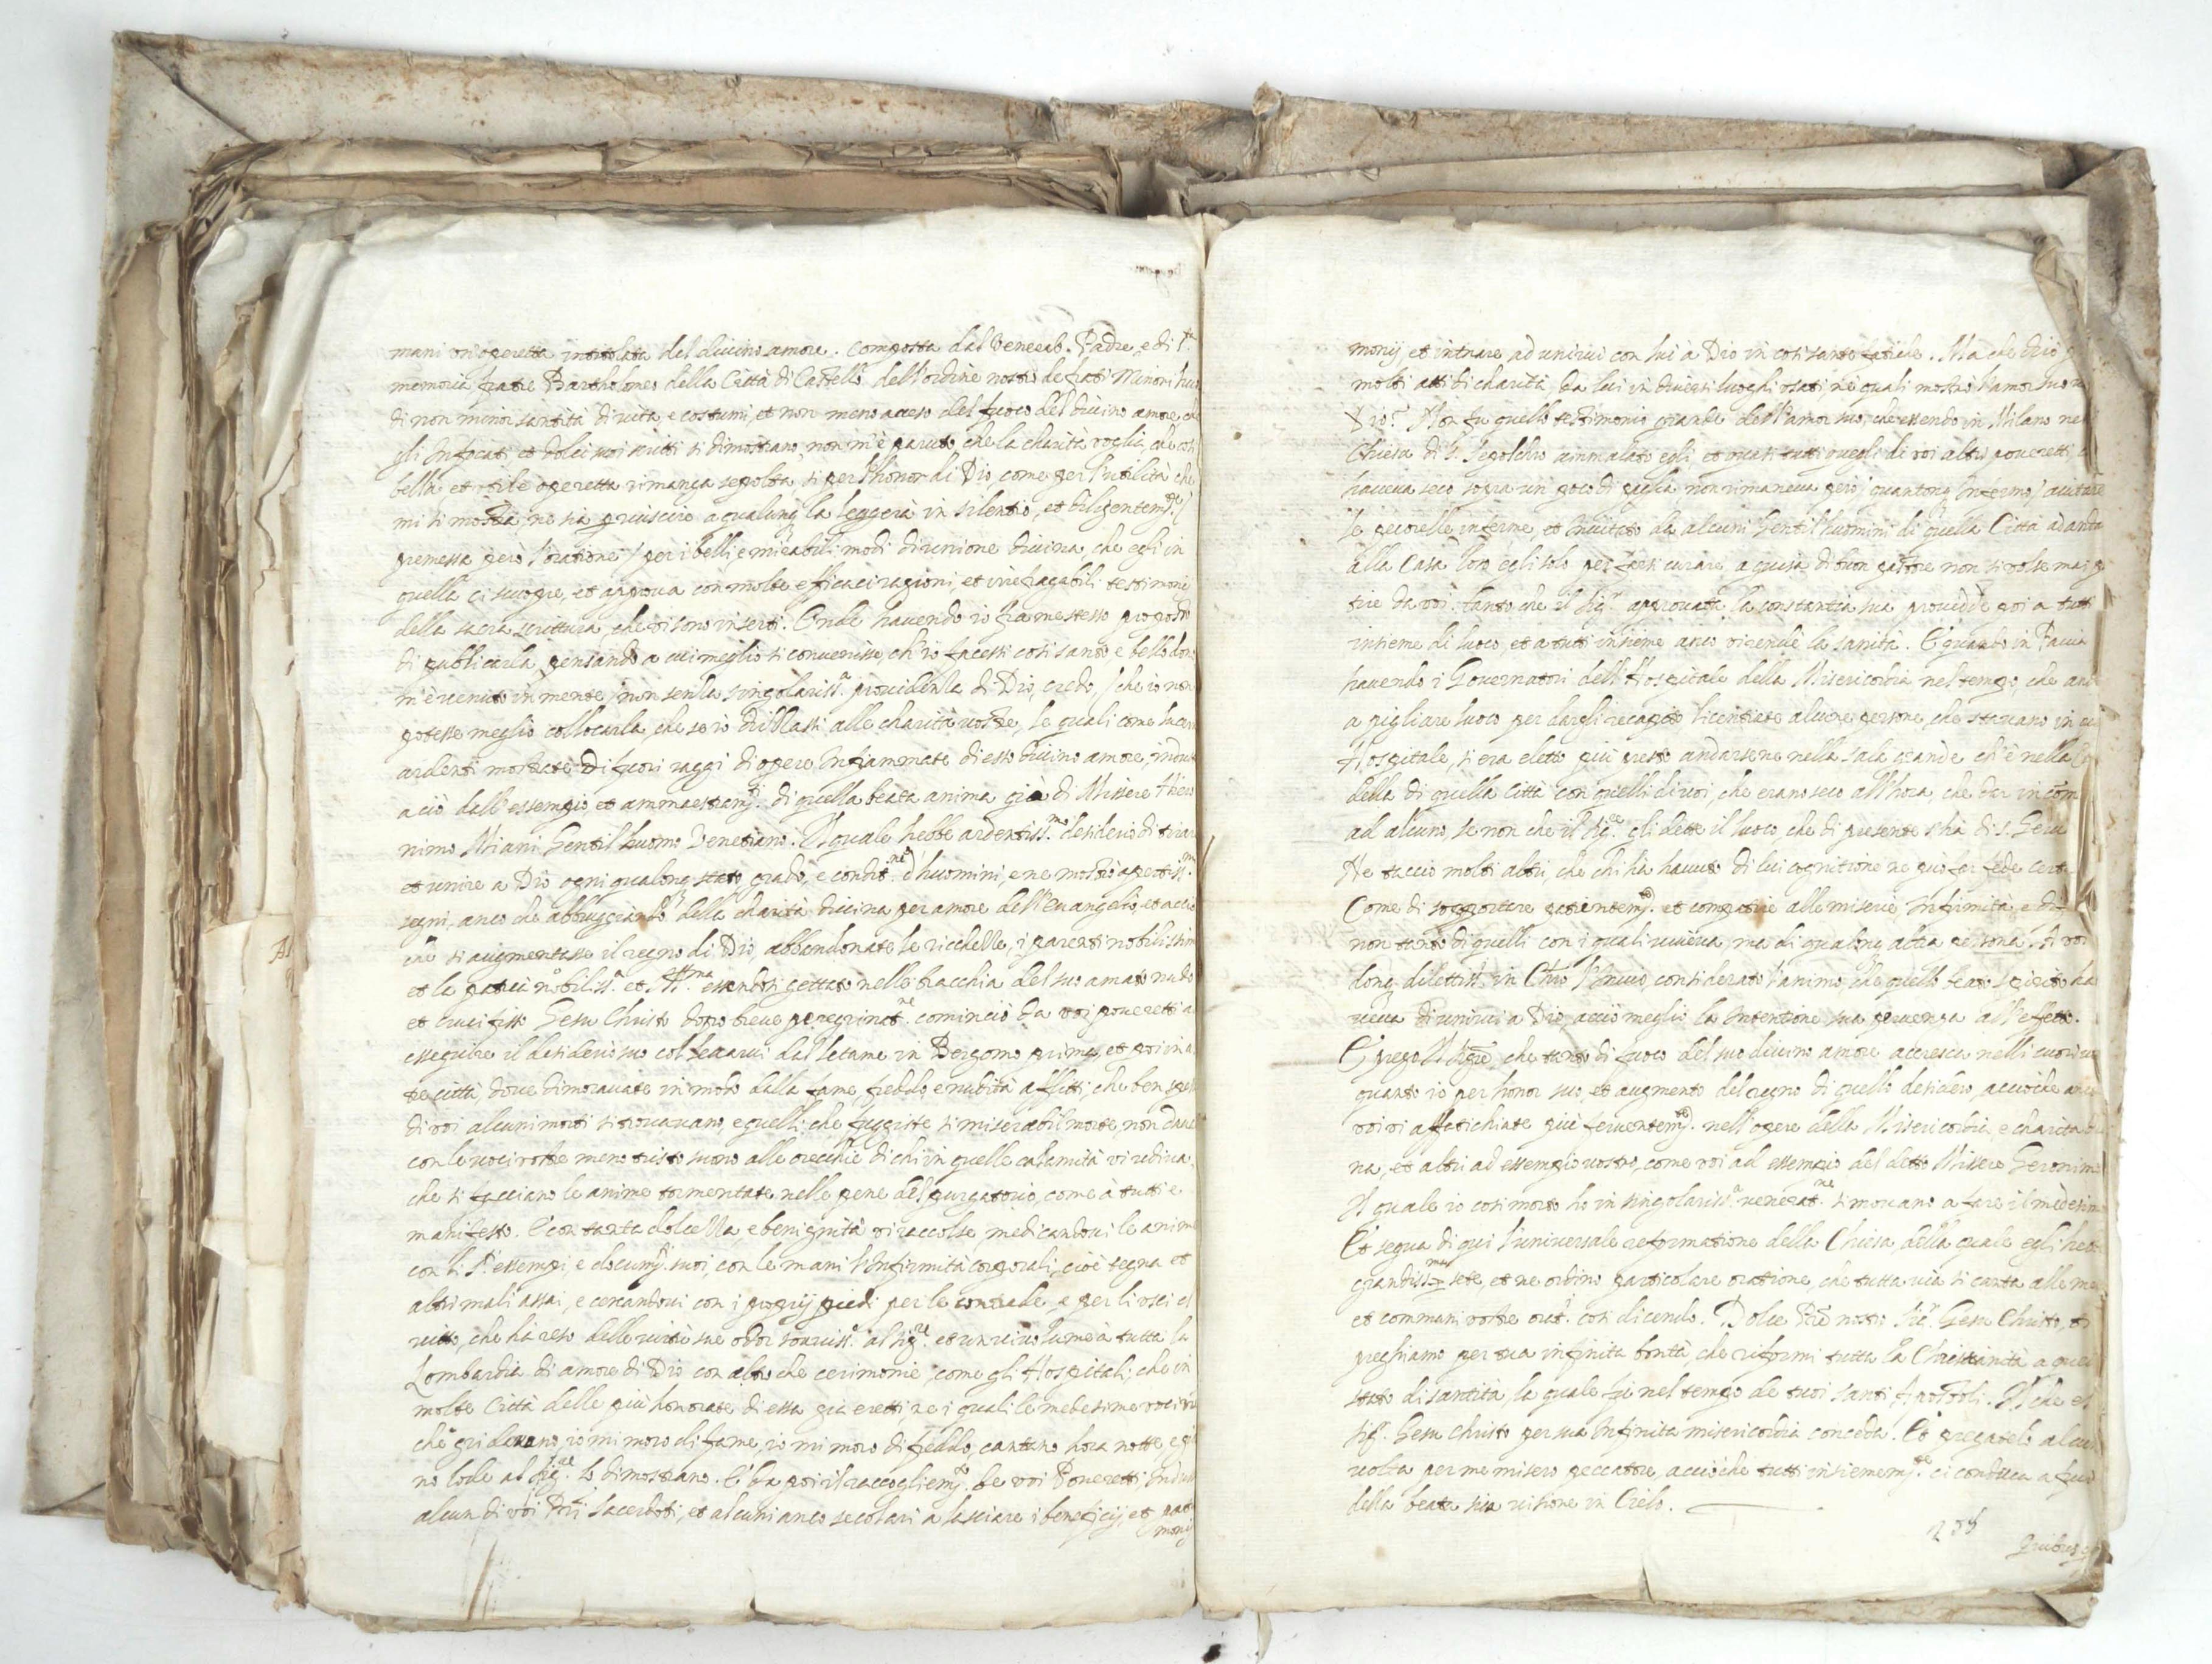 mani un'operetta intitolata del divino amore. Composta dal Venerab. Padre, e di s.ta
memoria, fratre Bartholomeo della Città di Castello dell'ordine nostro de frati Minori
di non minor santità di vita, e costumi, et non meno acceso del fuoco del divino amore, che
gli Infocati et dolci suoi scritti si dimostrano, non m'è paruto che la charità voglia, che cosi
bella et utile operetta rimanga sepolta, si per l'honor di Dio, come per l'utilità che
mi si mostra ne sia per uscire a qualunq. la leggerà in silentio, et diligentem.te /
premessa però l'oratione / per i belli, e mirabili modi di unione divina, che egli in
quella ci scuopre, et approva con molte efficaci ragioni, et irrefragabili testimonij
della sacra scrittura, che vi sono inserti. Onde havendo io fra me stesso proposto
di publicarla, pensando a cui meglio si convenisse, ch'io facessi cosi santo, e bello dono
m'è venuto in mente / non senza singolariss.a providenza di Dio, credo / che io non
potesse meglio collocarla, che se io drizzassi alle charità vostre, le quali come
ardenti mostrate di fuori raggi di opere Infiammate di esso divino amore,
a ciò dall'essempio et ammaestram.ti di quella beata anima già di Missere Hiero
nimo Miani Gentil'huomo Venetiano. Il quale hebbe ardentiss.mo desiderio di tirar
et unire a Dio ogni qualunq. stato, grado, e condit.ne d'huomini, e ne mostrò apertiss.mi
segni, anco che abbruggiando della charità divina per amore dell'Evangelio, et acciò
che si augmentasse il regno di Dio, abbandonate le ricchezze, i parenti nobilissimi
et la patria nobiliss.a et Ill.ma essendosi gettato nelle bracchia del suo amato nudo
et crucifisso Giesu Christo dopo breve peregrinat.ne cominciò da voi poveretti a
esseguire il desiderio suo col levarvi dal letame in Bergomo prima, et poi in
te città, dove dimoravate in modo dalla fame, freddo, e nudità afflitti, che ben spesso
di voi alcuni morti si trovavano, e quelli, che fuggiste si miserabil morte, non
con le voci vostre meno tristo suono alle orecchie di chi in quelle calamità vi udiva,
che si facciano le anime tormentate nelle pene del purgatorio, come à tutti è
manifesto. E con tanta dolcezza, e benignità vi raccolse, medicandovi le anime
con li s.ti essempi, e docum.ti suoi, con le mani l'Infirmità corporali, cioè tegna et
altri mali assai, e cercandovi con i proprij piedi per le contrade, e per li usci el
vitto, che hà reso delle virtù sue odor soaviss.o al Sig.re et un vivo lume à tutta la
Lombardia di amore di Dio con altro che cerimonie, come gli Hospitali, che in
molte Città delle più honorate di essa già eretti, ne i quali le medesime voci
che gridavano, io mi moro di fame, io mi moro di freddo, cantano hora notte, e gior
no lode al Sig.re lo dimostrano. E da poi il raccogliem.to de voi Poveretti, Indusse
alcun di voi Pri Sacerdoti, et alcuni anco secolari a lasciare i beneficij, et patri
monij
monij et intrare ad unirvi con lui à Dio in cosi sante fatiche. Ma che dirò
molti atti di charità, da lui in diversi luoghi usati, ne quali mostrò l'amor suo
Dio? Non fu quello testimonio grande dell'amor suo, che essendo in Milano nella
Chiesa di S. Sepolchro ammalato egli, et quasi tutti quegli di voi altri poveretti,
haveva seco sopra un poco di paglia non rimaneva però / quantonq. Infermo / aiutare
le pecorelle inferme, et Invitato da alcuni Gentil'huomini di quella Città ad andar
alla Casa loro egli solo per farsi curare, a guisa di buon pastore non si volse mai
tire da voi. tanto che il Sig.re approvata la constantia sua providde poi a tutti
insieme di luoco, et a tutti insieme anco ricevuti la sanità. E quando in Pavia
havendo i Governatori dell'Hospitale della Misericordia nel tempo, che
a pigliare luoco per dargli recapito licentiate alcune persone, che stavano in
Hospitale, si era eletto più presto andarsene nella sala grande ch'è nella
della di quella Città con quelli di voi, che erano seco all'hora, che dar incom
ad alcuno, se non che il Sig.re gli dette il luoco che di presente s'ha di S. Gerv
Ne taccio molti altri, che chi hà havuto di lui cognitione ne può far fede certa
Come di sopportare patientem.te et compatire alle miserie Infirmità, e
non tanto di quelli con i quali viveva, ma di qualonq. altra persona. A voi
donq. dilettiss.i in Chro l'Invio, considerato l'animo che quello beato spirito ha
veva di unirvi a Dio, acciò meglio la Intentione sua pervenga all'effetto.
E prego il Sig.re che tanto di fuoco del suo divino amore accresca nelli cuori
quanto io per honor suo, et augmento del regno di quello desidero, acciòche anco
voi vi affatichiate più ferventem.te nell'opere della Misericordia, e charità divi
na, et altri ad essempio vostro, come voi ad essempio del detto Missere Geronimo
Il quale io cosi morto ho in singolariss.a venerat.ne si movano a fare il medesimo
Et segua di qui l'universale reformatione della Chiesa, della quale egli hebbe
grandiss.ma sete, et ne ordinò particolare oratione, che tutta via si canta alle mense
et communi vostre orat.i cosi dicendo. Dolce Pre nostro Sig.r Giesu Christo, ti
preghiamo per tua infinita bontà, che riformi tutta la Christianità a quel
stato di santità, la quale fù nel tempo de tuoi Santi Apostoli. Il che el
Sig.r Giesu Christo per sua Infinita misericordia conceda. Et pregatelo alcuna
volta per me misero peccatore, acciòche tutti insiemem.te ci conduca a frui
della beata sua visione in Cielo.
Quibus